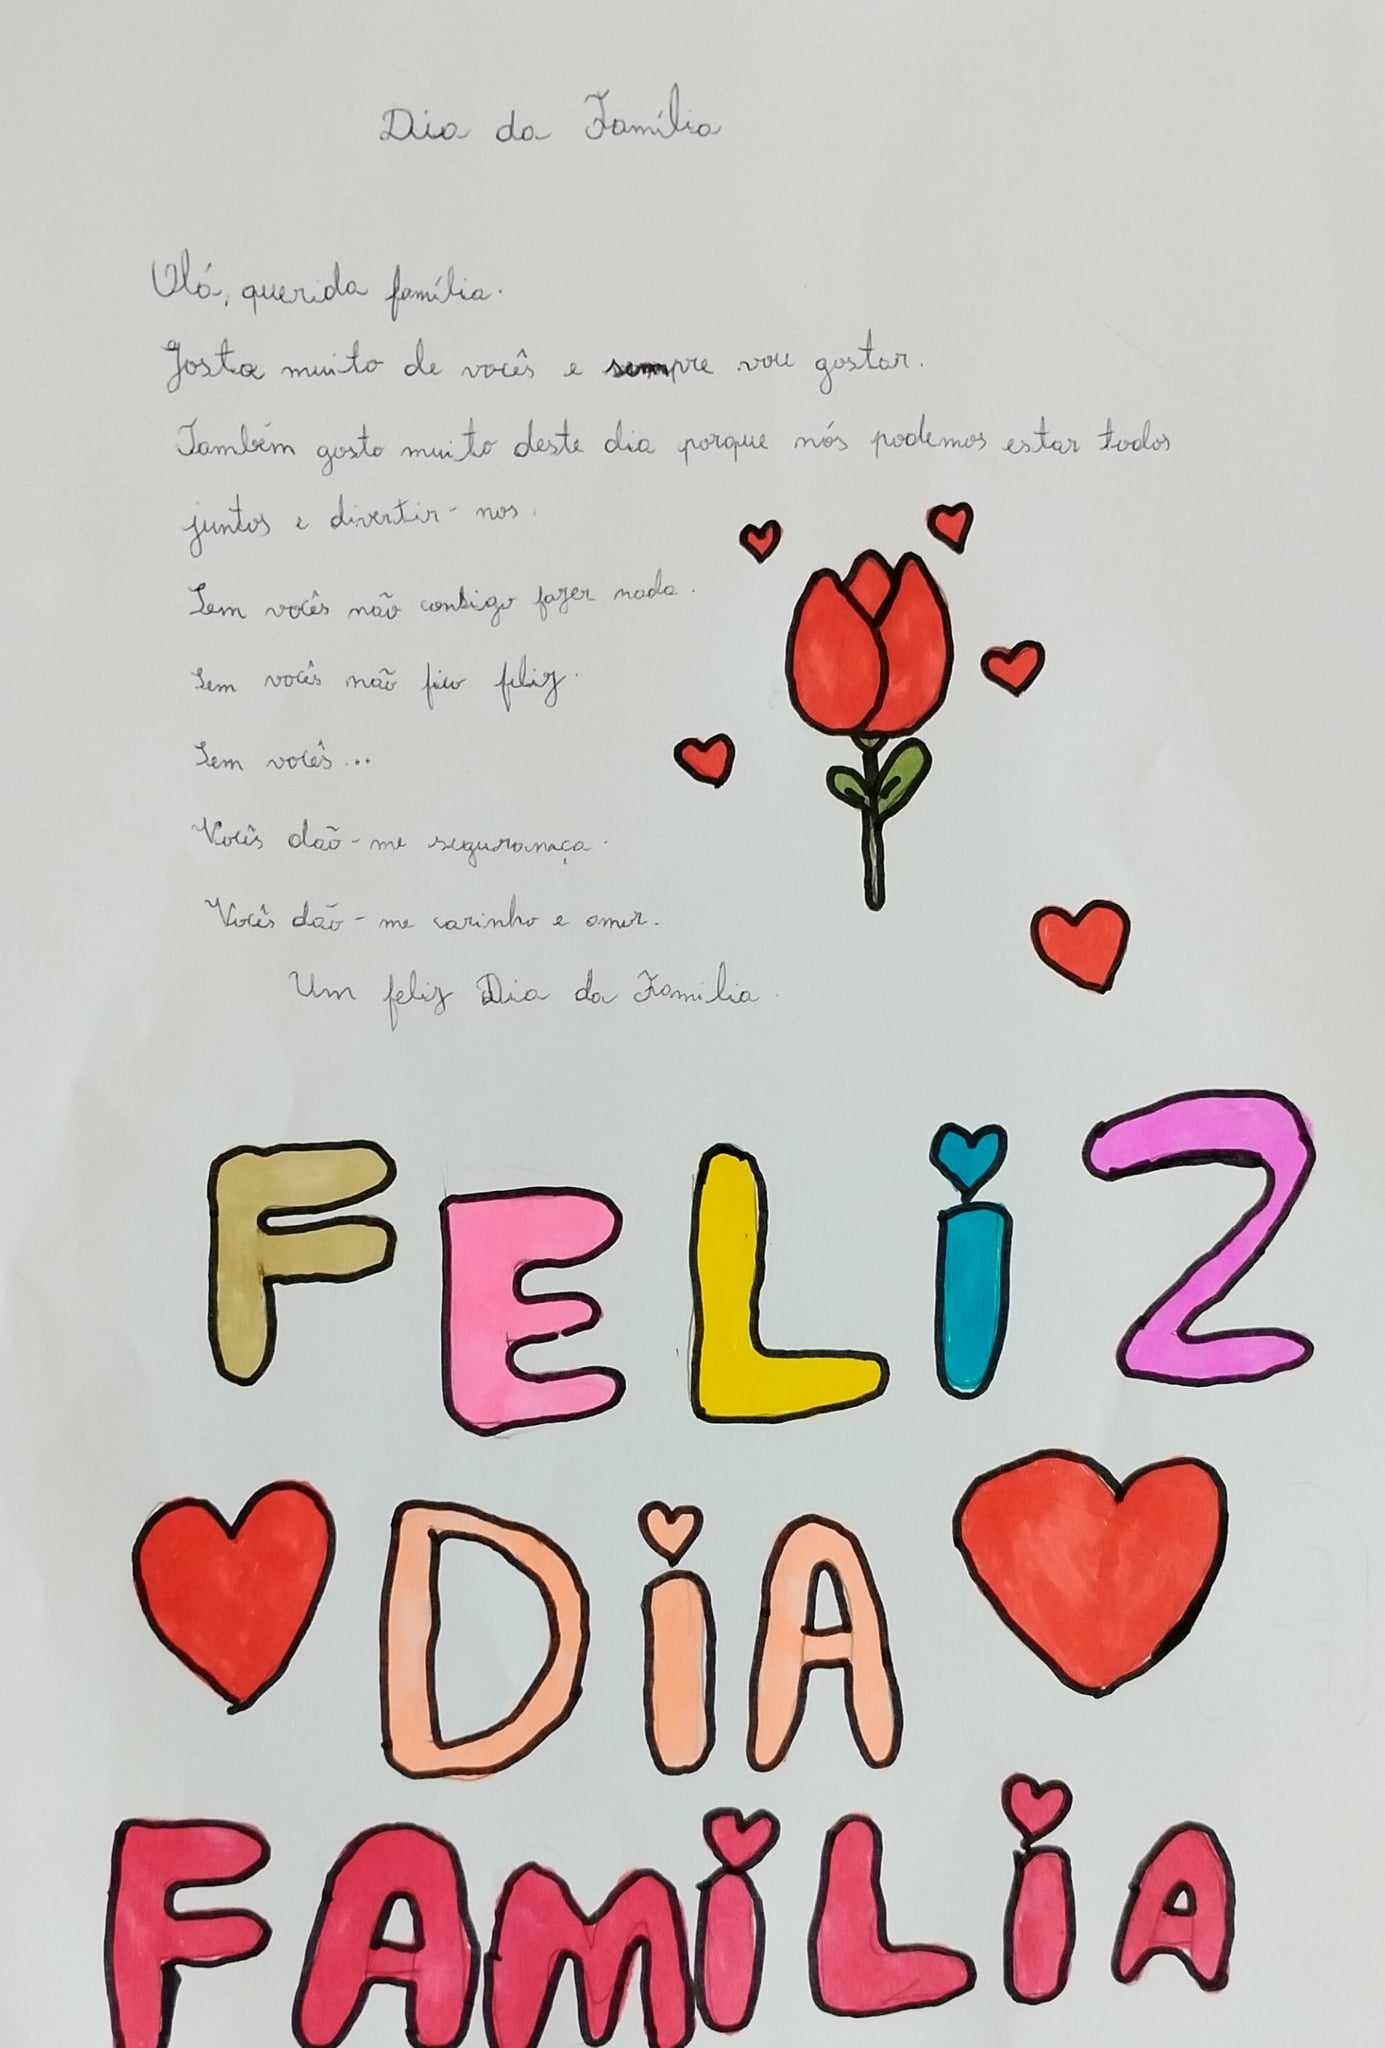 Dia da Família
Olá, querida família.
Gosto muito de vocês e sempre vou gostar.
Também gosto muito deste dia porque nós podemos estar todos
juntos e divertir-nos.
Sem vocês não consigo fazer nada.
Sem vocês não fico feliz.
Sem vocês...
Vocês dão-me segurança.
Vocês dão-me carinho e amor.
Um feliz Dia da Família.
FELiZ
DiA
FAMiLiA